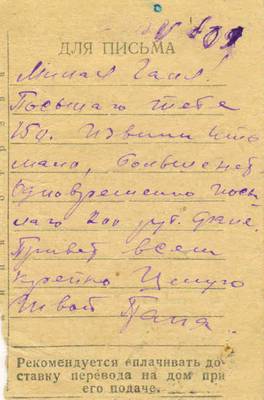 ДЛЯ ПИСЬМА
Милая Галя!
Посылаю тебе
150. Извини что
мало, больше нет
Одновременно посы
лаю 200 руб.
Привет всем
Крепко Целую
Твой Папа.
Рекомендуется оплачивать до-
ставку перевода на дом при
его подаче.